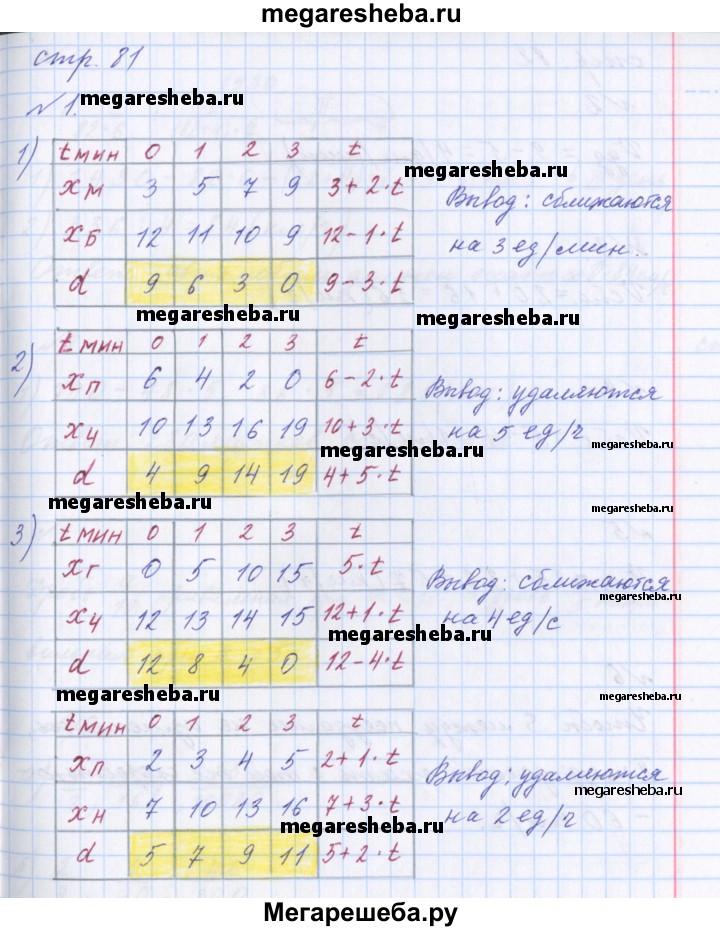 megaresheba.ru
стр. 81
№ 1. megaresheba.ru
1)
t мин 0 1 2 3 t
xм 3 5 7 9 3+2·t
megaresheba.ru
Вывод: сближаются
xБ 12 11 10 9 12-1·t
на 3 ед/мин.
d 9 6 3 0 9-3·t
megaresheba.ru
megaresheba.ru
2)
t мин 0 1 2 3 t
xп 6 4 2 0 6-2·t
Вывод: удаляются
xч 10 13 16 19 10+3·t
на 5 ед/ч
megaresheba.ru
megaresheba.ru
d 4 9 14 19 4+5·t
megaresheba.ru
megaresheba.ru
3)
t мин 0 1 2 3 t
xг 0 5 10 15 5·t
Вывод: сближаются
megaresheba.ru
xч 12 13 14 15 12+1·t
на 4 ед/с
megaresheba.ru
d 12 8 4 0 12-4·t
megaresheba.ru
megaresheba.ru
t мин 0 1 2 3 t
xп 2 3 4 5 2+1·t
Вывод: удаляются
megaresheba.ru
xн 7 10 13 16 7+3·t
на 2 ед/ч
megaresheba.ru
d 5 7 9 11 5+2·t
Мегарешеба.ру